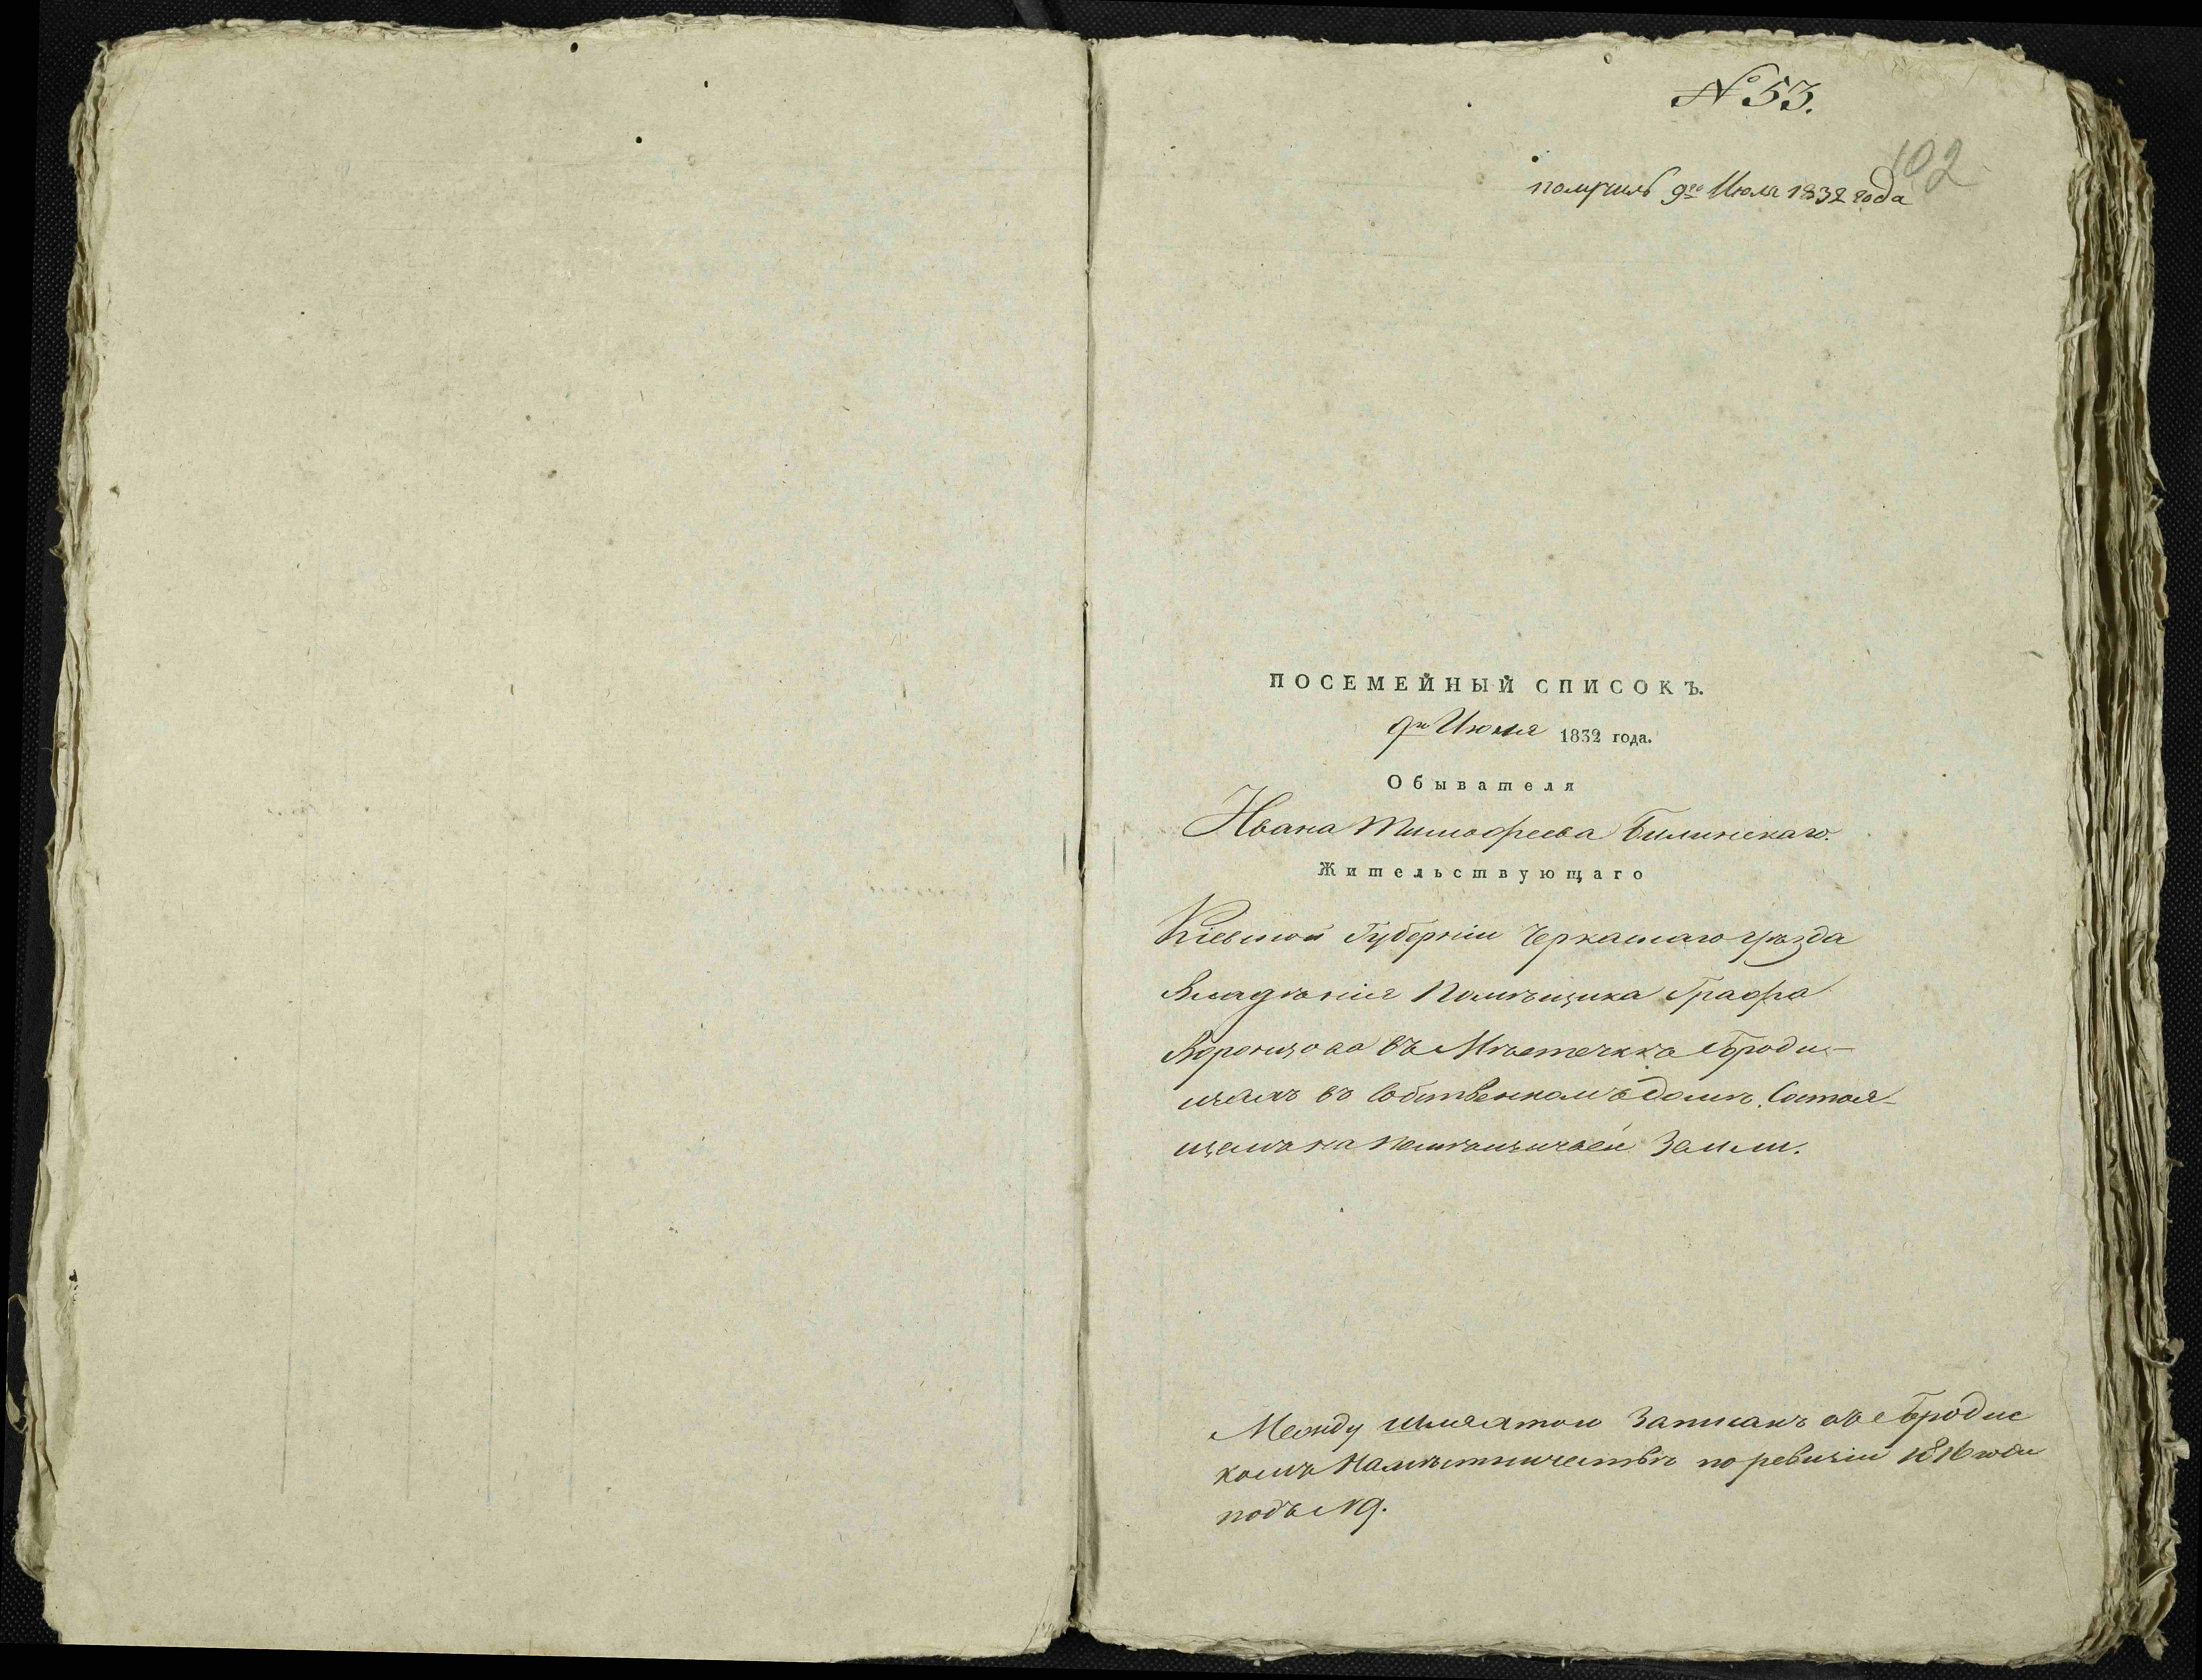 № 53.
102
получилъ 9го Июля 1832 года
ПОСЕМЕЙНЫЙ СПИСОКЪ.
9го Июля 1832 года.
Обывателя
Ивана Тимофеева Билинскаго.
Жительствующаго
Кіевской Губерніи Черкаскаго уѣзда
Владѣнія Помѣщика Графа
Воронцова въ Мѣстечкѣ Городи-
щахъ въ Собственномъ домѣ, Состоя-
щемъ на Помѣщичьей Земли.
Между шляхтою Записанъ въ Городис
комъ Намѣстничествѣ по ревизіи 1816 года
подъ № 9.